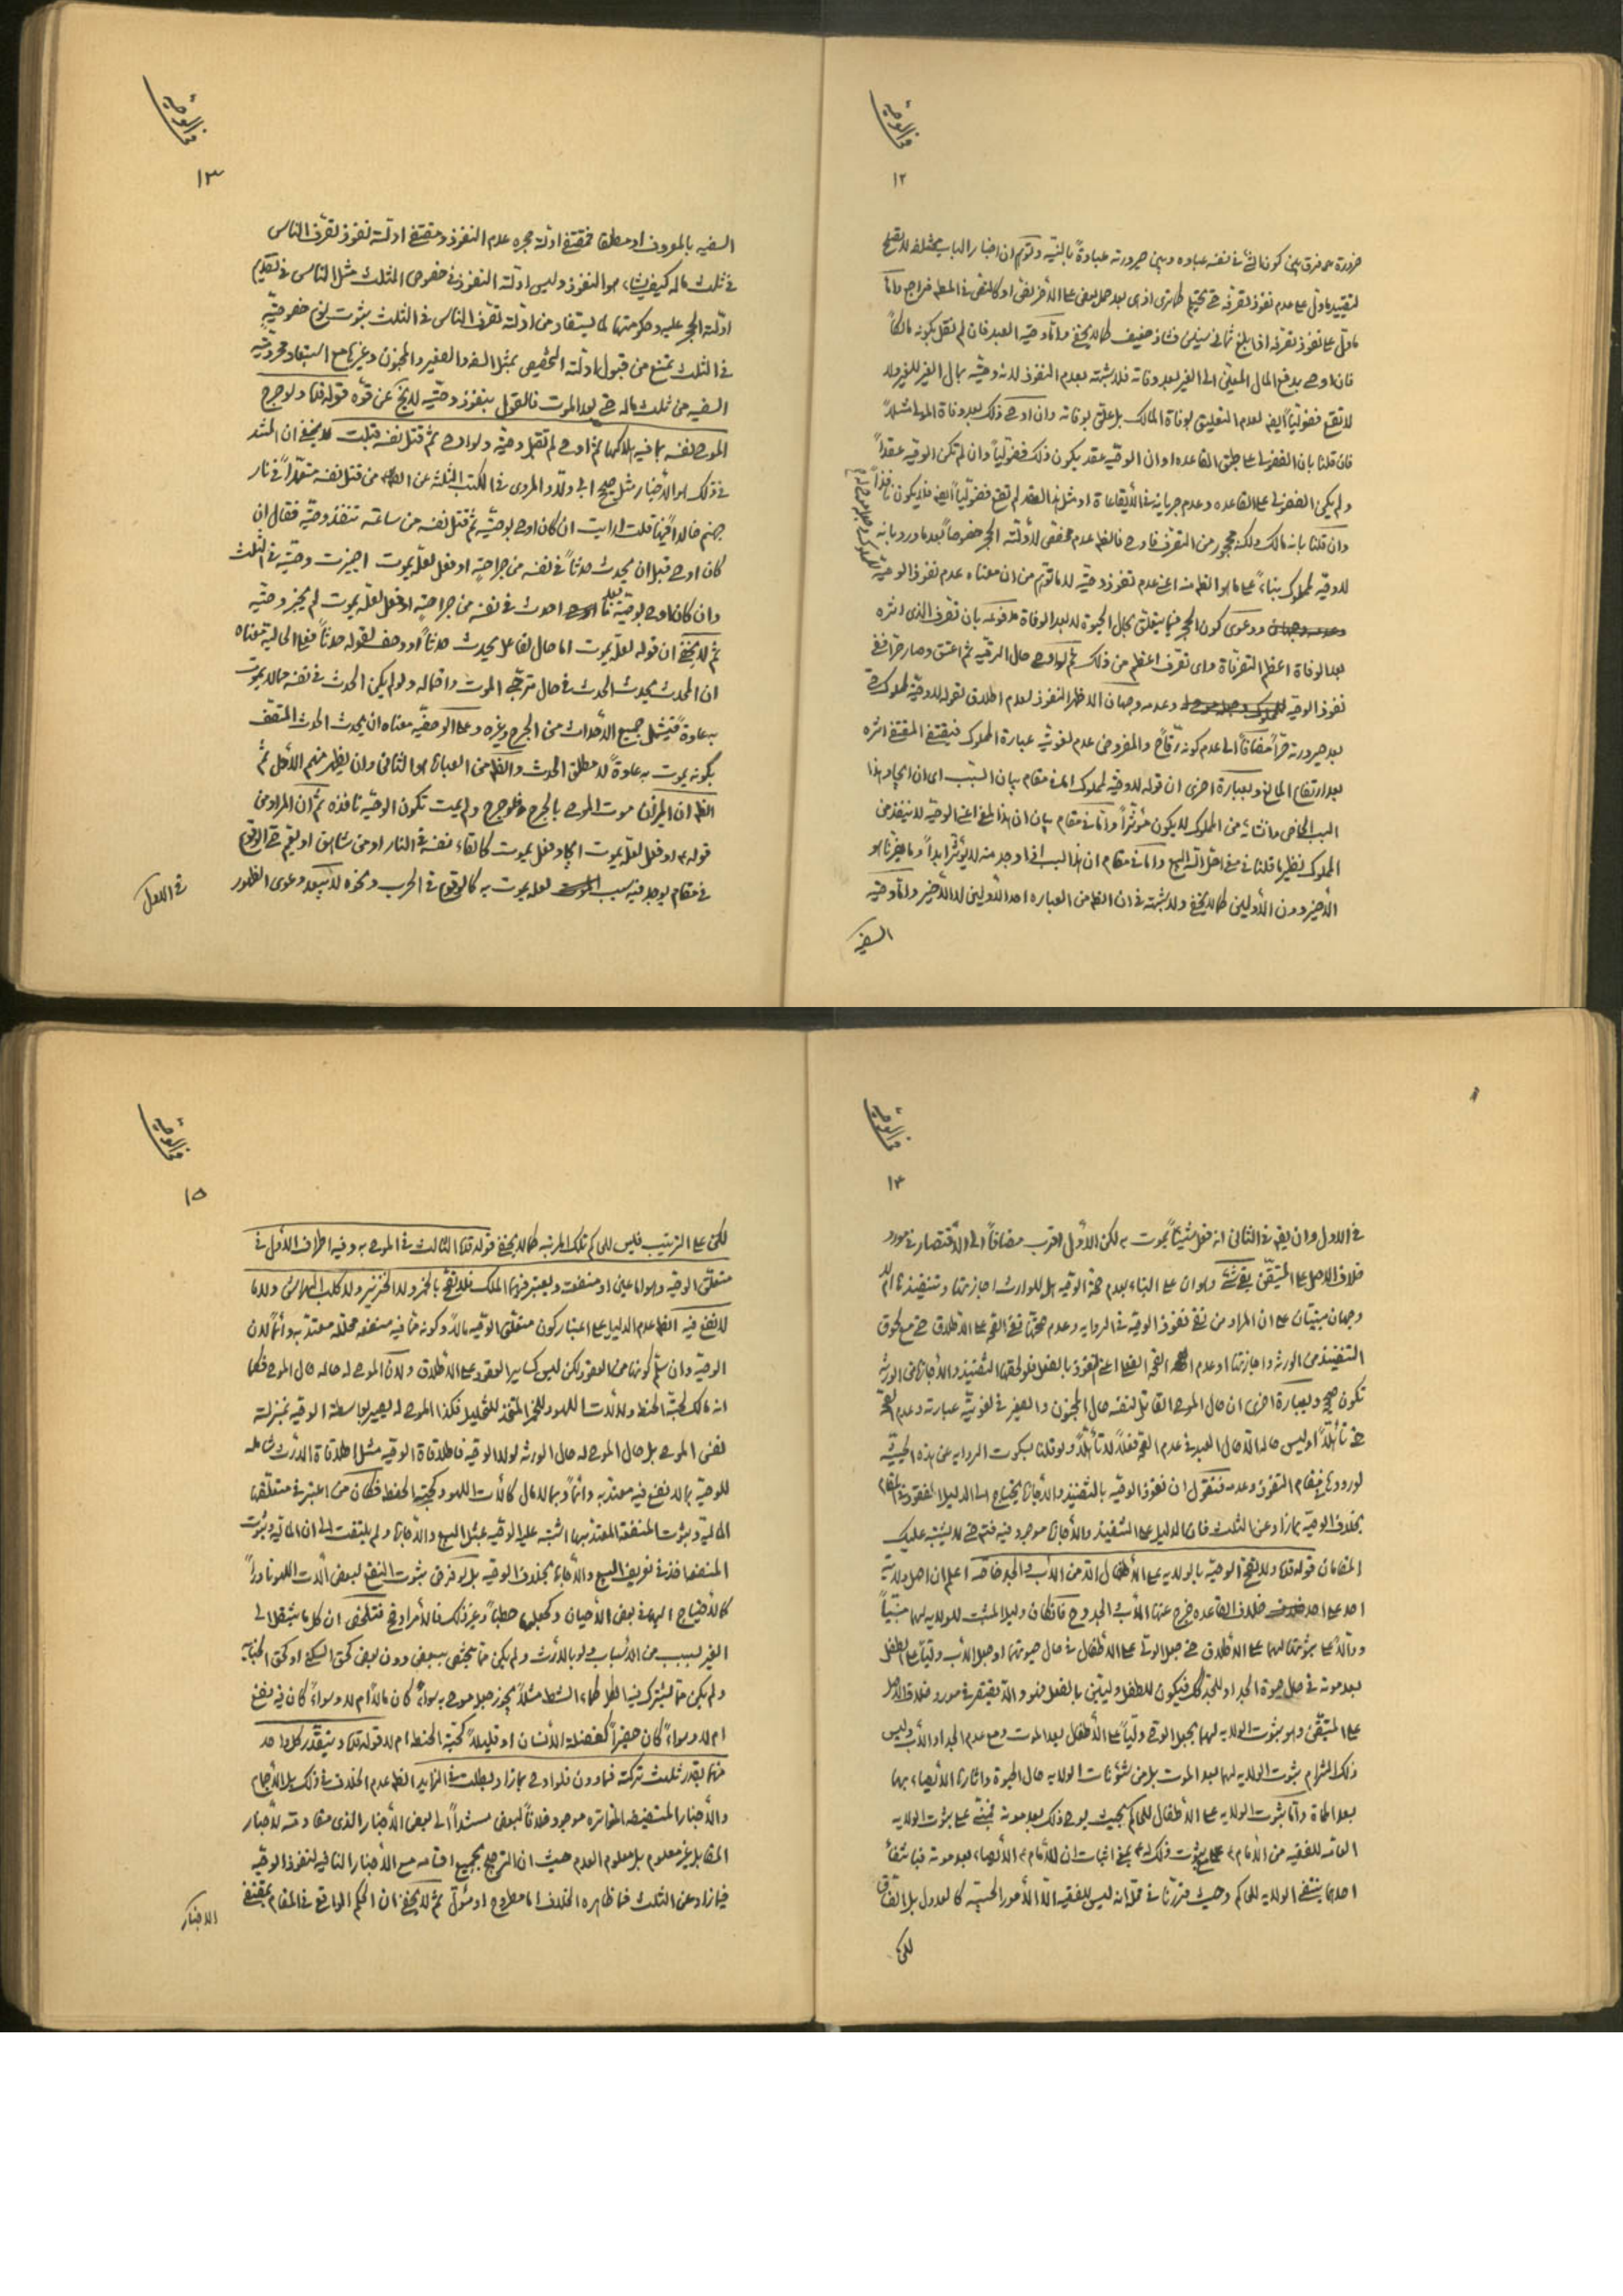 في الوصية
١٢
ضرورة فرق بين كون الشئ في نفسه عباده وبين صيرورته عبادةً بالنيّه وتوهم ان اخبار الباب مختلفه لا يصلح
لتقييد ما دل على عدم نفوذ تصرفه حتى يحتلم كما ترى اذ هي بعد حمل بعض على الآخر نص او كالنص في المطلب فراجع وامّا
ما دلّ على نفوذ تصرفه اذا بلغ ثماني سنين فشاذ ضعيف كما لا يخفى وامّا وصيّه العبد فان لم نقل بكونه مالكاً
فان اوصى بدفع المال المعيّن الى الغير بعد وفاته فلا شبهة بعدم النفوذ لانه وصيّه بمال الغير للغير ولا
لا تقع فضوليّاً ايضا لعدم التعليق بوفاة المالك بل علّق بوفاته وان اوصى ذلك بعد وفاة المولى مثلاً
فان قلنا بان الفضولى على طبق القاعده او ان الوصيّه عقد يكون ذلك فضوليّاً وان لم تكن الوصيه عقداً
ولم يكن الفضولى على القاعده وعدم جريانه في الأيقاعاة او مثل هذا العقد لم تقع فضوليّاً ايضا فلا يكون نافذاً
وان قلنا بانه مالك ولكنه محجور من التصرف فاوصى فالظ عدم مخصص لأدلّته الحجر خصوصاً بعد ما ورد بانه
لا وصيّه لمملوك بناءً على ما هو الظ منه اعنى عدم نفوذ وصيّه لا ما توهم من ان معناه عدم نفوذ الوصيّه
ودعوى كون الحجر فيما يتعلق بحال الحيوة لا بعد الوفاة مدفوعه بان تصرف الذى اثره
بعد الوفاة اعظم التصرفاة واى تصرف اعظم من ذلك ثم لو اوصى حال الرقيّه ثم اعتق وصار حرا ففى
نفوذ الوصيه وعدمه وجهان الاظهر النفوذ لعدم اطلاق لقوله لا وصيّه لمملوك حتى
بعد صيرورته حرّاً مضافاً الى عدم كونه رقاًّ والمفروض عدم لغويّه عبارة المملوك فيقتضى المقتضى اثره
بعد ارتفاع المانع وبعبارة اخرى ان قوله لا وصيّه لمملوك امّا في مقام بيان السّبب اى ان ايجاد هذا
السبب الخاص وانشائه من المملوك لا يكون مؤثّراً وامّا في مقام بيان ان هذا المعنى اعنى الوصيّه لا ينفذ من
المملوك نظير ما قلنا في معنى احلّ الله البيع وامّا في مقام ان هذا السبب اذا وجد منه لا يؤثّر ابداً وما يضرّنا هو
الأخير دون الأولين كما لا يخفى ولا شبهة في ان الظ من العباره احد الأولين لا الأخير وامّا وصيّه
السفيه
في الوصية
١٣
السفيه بالمعروف او مطلقا فمقتضى ادلّة حجره عدم النفوذ ومقتضى ادلّته نفوذ تصرّف الناس
في ثلث ماله كيف يشاء هو النفوذ وليس ادلّته النفوذ في خصوص الثلث مثل الناس في تقديم
ادلّته الحجر عليه وحكومتها لما يستفاد من ادلّته تصرّف الناس في الثلث بثبوت نوع خصوصيّةٍ
في الثلث تمنع من قبول ادلّته التخصيص بمثل السفه والصغير والمجنون وغيرها مع استبعاد محروميّة
السفيه من ثلث ماله حتى بعد الموت فالقول بنفوذ وصيّه لا يخ عن قوّه قوله قده ولو جرح
الموصى نفسه بما فيه هلاكها ثمّ اوصى لم تقبل وصيّه ولو اوصى ثمّ قتل نفسه قبلت لا يخفى ان المستند
في ذلك هو الأخبار مثل صحيح ابى ولّاد المروى في الكتب الثلثة عن الصّ من قتل نفسه متعمّداً في نار
جهنم خالداً فيها قلت ارايت ان كان اوصى بوصيّه ثمّ قتل نفسه من ساعته تنفذ وصيّه فقال ان
كان اوصى قبل ان يحدث حدثاً في نفسه من جراحتٍه او فعل لعلّه يموت اجيزت وصيّه في الثلث
وان كان اوصى بوصيّه بعد ما احدث في نفسه من جراحتٍه او فعل لعلّه يموت لم يجز وصيّه
ثمّ لا يخفى ان قوله لعلّه يموت اما حال لفاعل يحدث حدثاً او وصف لقوله حدثاً فعلى الحالية معناه
ان المحدث يحدث الحدث في حال ترجّى الموت واحتماله ولو لم يكن الحدث في نفسه مما لا يموت
به عادةً فيشمل جميع الأحداث من الجرح وغيره وعلى الوصفيّه معناه ان يحدث الحدث المتّصف
بكونه يموت به عادةً لا مطلق الحدث والظ من العبارة هو الثانى وان يظهر منهم الأوّل ثمّ
الظ ان الميزان موت الموصى بالجرح فلو جرح ولم يمت تكون الوصيّه نافذه ثمّ ان المراد من
قوله او فعل لعلّه يموت ايجاد فعل يموت كالقاء نفسه في النار او من شاهق او يعم حتى الوقوع
في مقام يوجد فيه سبب لعلّه يموت به كالوقوع في الحرب ونحوه لا يبعد دعوى الظهور
في الاول
في الوصية
١٤
في الاول وان يقع في الثانى انه فعل شيئاً يموت به لكن الأول اقرب مضافاً الى الأقتصار في مورد
خلاف الاصل على المتيقّن بقى شئ وهو ان على البناء بعدم صحة الوصيه هل للوارث اجازتها وتنفيذها ام لا
وجهان مبنيّان على ان المراد من نفى نفوذ الوصيه في الروايه وعدم صحّتها نفى الصّحه على الاطلاق حتى مع لحوق
التنفيذ من الورثه واجازتها او عدم الصّحه الفعلى اعنى النفوذ بالفعل فلو لحقها التنفيذ والأجازة من الورثه
تكون صحيح وبعبارة اخرى ان حال الموصى القاتل لنفسه حال المجنون والصغير في لغويّه عبارته وعدم الصّحه
حتى تأهّلاً او ليس حاله الّا حال العبد في عدم الصّحه فعلاً لا تأهّلاً ولو قلنا بسكوت الروايه عن هذه الحيثيّه
لوروده في مقام النفوذ وعدمه فنقول ان نفوذ الوصيه بالتنفيذ والأجازة يحتاج الى الدليل المفقود في المقام
بخلاف الوصيّه بما زاد عن الثلث فان الدليل على التنفيذ والأجازة موجود فيه فتم حتى لا يشتبه عليك
المقامان قوله قده ولا تصحّ الوصيّه بالولايه على الأطفال الّا من الأب والجد خاصّه اعلم ان اصل ولايته
احد على احد خلاف القاعده خرج عنها الأب والجد وح فان كان دليل المثبت للولايه لهما مبنيّاً
ودالّاً على ثبوتها لهما على الاطلاق حتى جعل الولىّ على الأطفال في حال حيوتهما او جعل الأب وليّاً على الطفل
بعد موته في حال حيوة الجد او للجد كك فيكون للطفل وليين بالفعل فهو والّا يقتصر في مورد خلاف الاصل
على المتيقّن وهو ثبوت الولايه لهما بجعل الوصى وليّاً على الأطفال بعد الموت ومع عدم الجد او الأب وليس
ذلك التزام بثبوت الولايه لهما بعد الموت بل من شئونات الولايه حال الحيوة واثارها الأيصاء بها
بعد المماة وأمّا ثبوت الولايه على الأطفال للحاكم بحيث يوصى ذلك بعد موته فمبنىّ على ثبوت الولايه
العامّه للفقيه من الأمام ع مع ثبوت ذلك له ع يعنى اثبات ان للأمام ع الأيصاء بعد موته فبانتفاء
احدهما ينتفى الولايه للحاكم وحيث قرّرنا في محلّه انه ليس للفقيه الّا الأمور الحسبيّه كالعدول بلا اتّفاق
لكن
في الوصية
١٥
لكن على الترتيب فليس للحاكم تلك المرتبه كما لا يخفى قوله قده الثالث في الموصى به وفيه اطراف الأول في
متعلّق الوصيه وهو اما عين او منفعت ويعتبر فيهما الملك فلا تصحّ بالخمر ولا الخنزير ولا كلب الهراش ولا ما
لا نفع فيه الظ عدم الدليل على اعتبار كون متعلّق الوصيه مالاً وكونه ممّا فيه منفعه محلّله معتدّ به دائماً لان
الوصيّه وان سلّم كونها من العقود لكن ليس كساير العقود على الاطلاق ولان الموصى له حاله حال الموصى فكما
انه مالك لحبّة الحنطه ولآلات اللهو وللخمر المتّخذ للتخليل فكذا الموصى له يصير بواسطة الوصيه بمنزلته
نفس الموصى بل حال الموصى له حال الورثه لولا الوصيه فاطلاقاة الوصيه مثل اطلاقاة الأرث شامله
للوصيّه بما لا نفع فيه معتدّ به دائماً وبما لا مال كآلات اللهو وكحبّة الحنطه فكان من اعتبر في متعلّقها
المالية وثبوت المنفعة المعتدّ بها اشتبه عليه الوصيه بمثل البيع والأجارة ولم يلتفت الى ان المالية وثبوت
المنفعه اخذ في تعريف البيع والأجارة بخلاف الوصيه بل لو فرض ثبوت النفع لبعض آلات اللهو نادراً
كالأحتياج اليها في بعض الأحيان وكجعلها حطباً وغير ذلك فالأمر اوضح فتلخّص ان كل ما ينتقل الى
الغير بسبب من الأسباب ولو بالأرث ولم يكن ممّا يختصّ ببعض دون بعض كحق السكنى او كحق الجناية
ولم يكن ممّا يشترك فيه الكل كماء الشط مثلاً يجوز جعل موصى به سواءً كان مالاً ام لا وسواءً كان فيه نفع
ام لا وسواءً كان حقيراً كفضلة الأنسان او قليلاً كحبّة الحنطه ام لا قوله قده ويتقدّر كل واحد
منهما بقدر ثلث تركته فما دون فلو اوصى بما زاد بطلت في الزايد الظ عدم الخلاف في ذلك بل الأجماع
والأخبار المستفيضه المتواتره موجود خلافاً لبعض مستنداً الى بعض الأخبار الذى مقاومته لأخبار
المقابل غير معلوم بل معلوم العدم حيث ان الترجيح بجميع اقسامه مع الأخبار النافيه لنفوذ الوصيّه
فيما زاد عن الثلث فما ظاهره الخلاف اما مطروح او مئوّل ثمّ لا يخفى ان الحكم الواقع في المقام بمقتضى
الاخبار